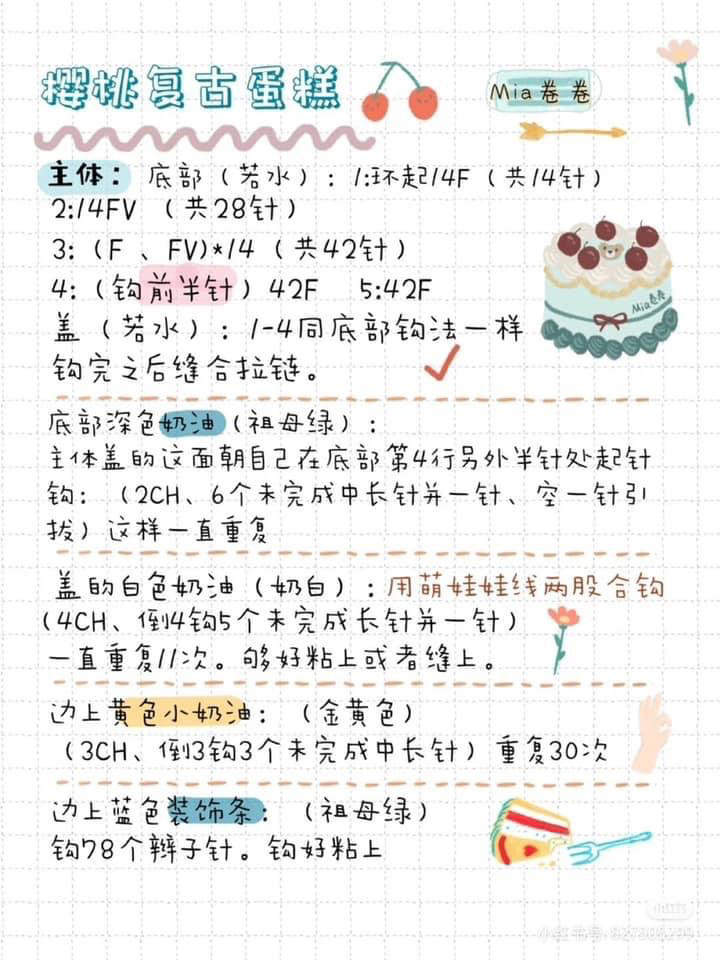 樱桃复古蛋糕
Mia卷卷
主体：底部（若水）：1:环起14F（共14针）
2:14FV （共28针）
3:（F 、FV)*14（共42针）
4:（钩前半针）42F 5:42F
Mia卷卷
盖（若水）：1-4同底部钩法一样
钩完之后缝合拉链。
底部深色奶油（祖母绿）：
主体盖的这面朝自己在底部第4行另外半针处起针
钩：（2CH、6个未完成中长针并一针、空一针引
拔）这样一直重复
盖的白色奶油（奶白）：用萌娃娃线两股合钩
（4CH、倒4钩5个未完成长针并一针）
一直重复11次。够好粘上或者缝上。
边上黄色小奶油：（金黄色）
（3CH、倒3钩3个未完成中长针）重复30次
边上蓝色装饰条：（祖母绿）
钩78个辫子针。钩好粘上
小红书